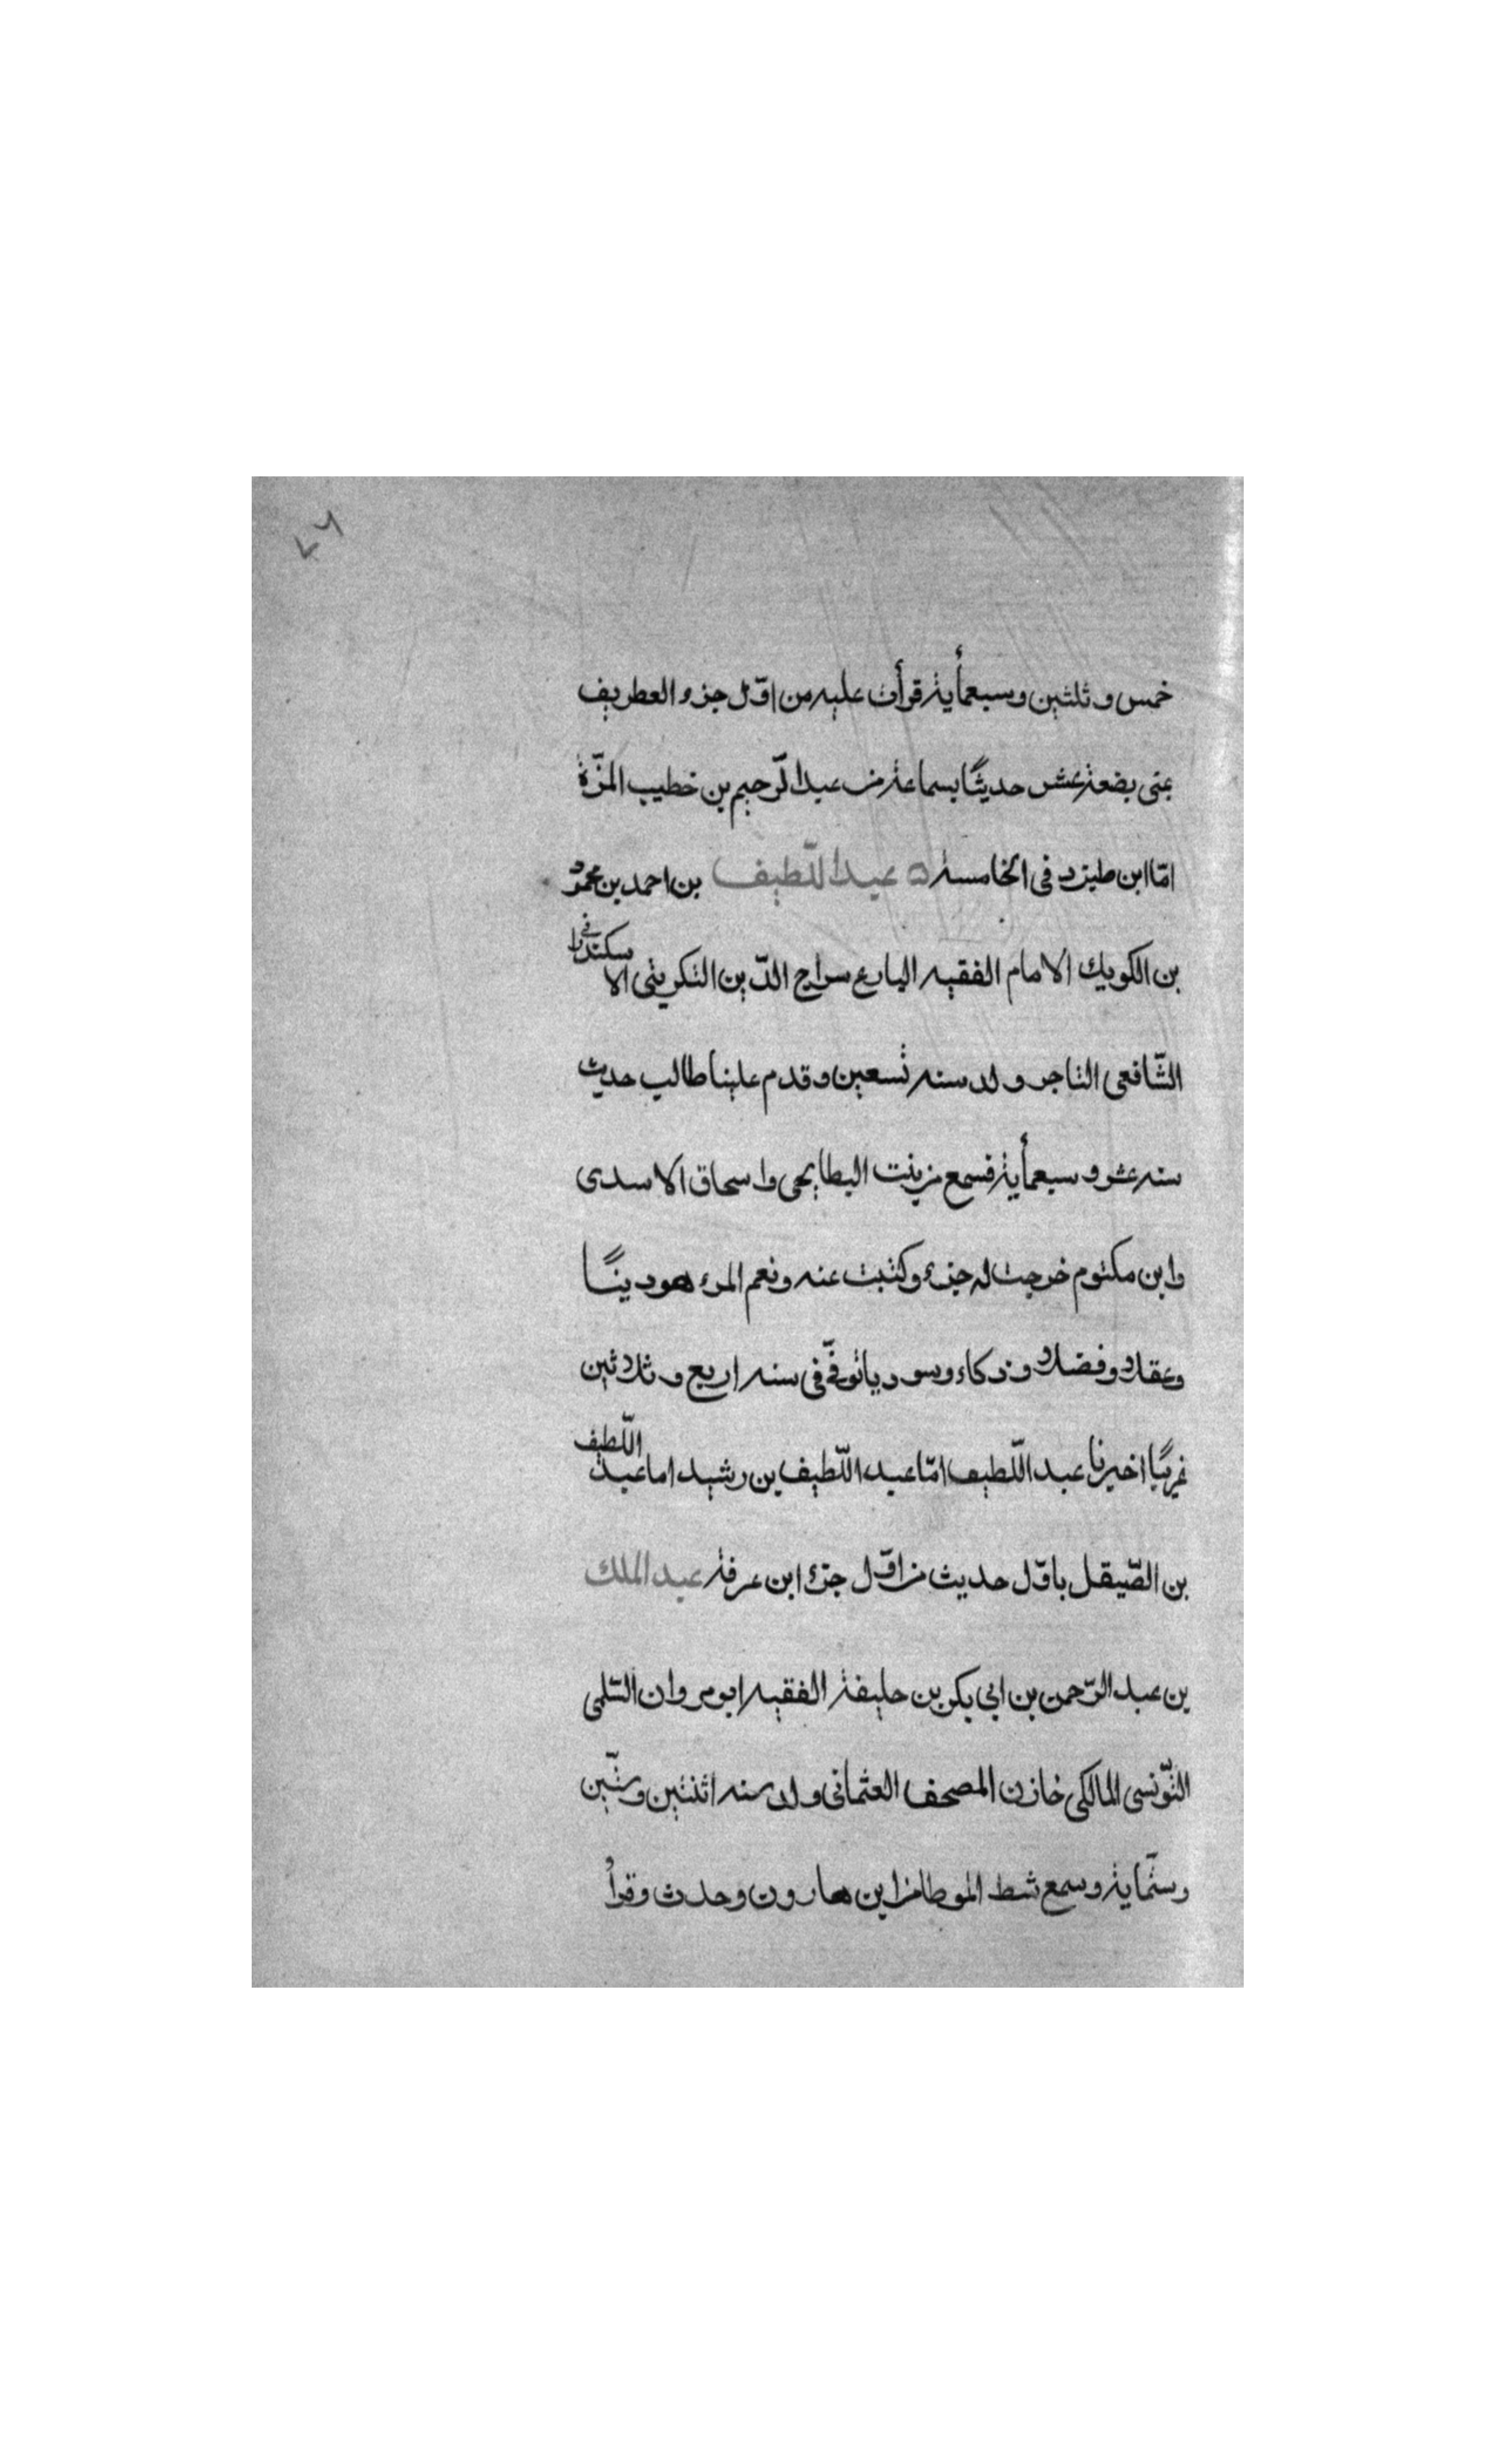 ٤٦
خمس وثلثين وسبعمأية قرأت عليه من اوّل جزء الغطريف
بمنى بضعة عشر حديثًا بسماعة من عبد الرّحيم بن خطيب المزّة
امّا ابن طبرزد في الخامسة عبد اللّطيف بن احمد بن محمود
بن الكويك الامام الفقيه البارع سراج الدّين التكريتي الاسكندرا في
الشّافعي التاجر ولد سنه تسعين وقدم علينا طالب حديث
سنه عشر وسبعمأية فسمع من بنت البطايحي واسحاق الاسدى
وابن مكتوم خرجت له جزء وكتبت عنه ونعم المرء هو دينًا
وعقلا وفضلا وذكاء وسود ياتوفّى في سنه اربع وثلاثين
غريبًا اخبرنا عبد اللّطيف امّا عبد اللّطيف بن رشيد اما عبد اللّطيف
بن الصّيقل باوّل حديث من اوّل جزء ابن عرفة عبد الملك
بن عبد الرّحمن بن ابي بكر بن خليفة الفقيه ابو مروان السّلمى
التّونسى المالكى خازن المصحف العثمانى ولد سنه اثنتين وستّين
وستّماية وسمع شط الموطا من ابن هارون وحدث وقرأ